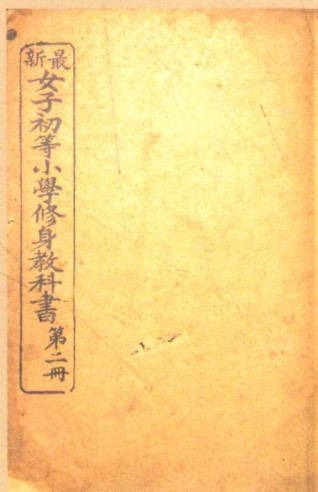 最新
女子初等小學修身教科書
第二冊